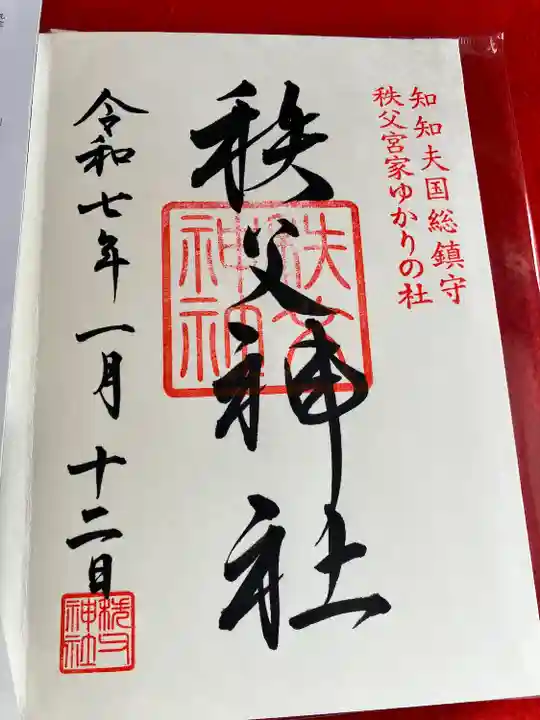 知知夫国総鎮守
秩父宮家ゆかりの社
秩父神社
秩父神社
令和七年一月十二日
秩父神社